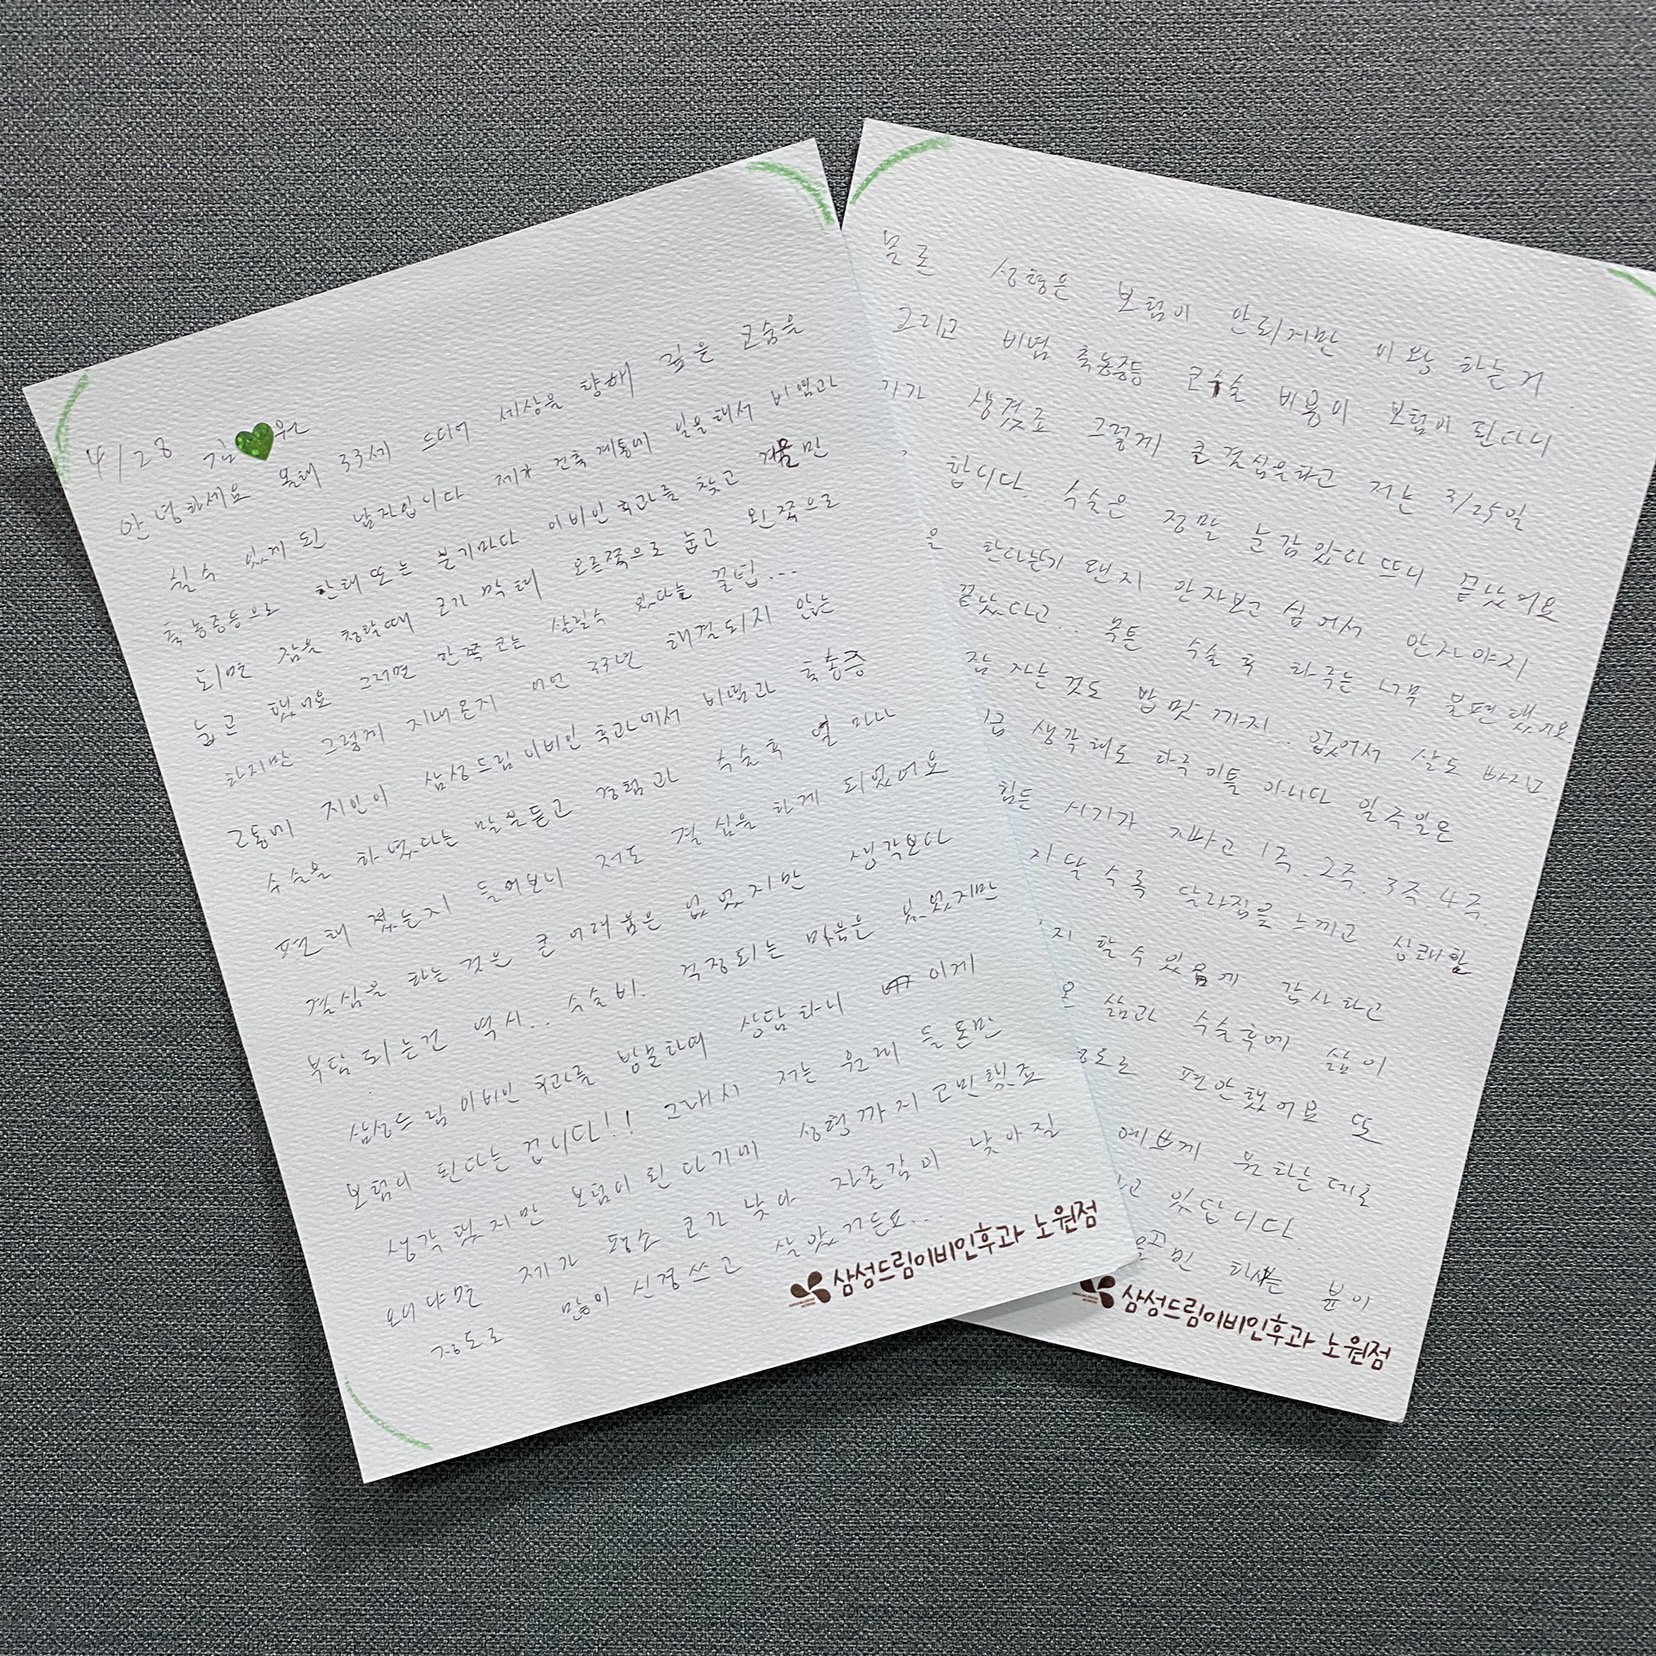 4/28 김 원
안녕하세요 올해 33세 드디어 세상을 향해 깊은 코숨을
쉴수 있게된 남자입니다 제가 건축계통에 일을해서 비염과
축농증등으로 한해또는 분기마다 이비인후과를 찾고 겨울만
되면 잠을 청할때 코가 막혀 오른쪽으로 눕고 왼쪽으로
눕곤 했어요 그러면 한쪽 코는 살릴수 있다는 꿀팁...
하지만 그렇게 지내온지 어언 33년 해결되지 않는
고통에 지인이 삼성드림이비인후과에서 비염과 축농증
수술을 하였다는 말을듣고 경험과 수술후 얼마나
편해 졌는지 들어보니 저도 결심을 하게 되었어요
결심을 하는것은 큰 어려움은 없었지만 생각보다
부담되는건 역시.. 수술비. 걱정되는 마음을 품었지만
삼성드림이비인후과를 방문하여 상담하니 이게
보험이 된다는 겁니다!! 그래서 저는 원래 들 돈만
생각 했지만 보험이 된다기에 성형까지 고민했죠
왜냐면 제가 평소 코가 낮아 자존감이 낮아질
정도로 많이 신경쓰고 살았거든요...
삼성드림이비인후과 노원점
물론 성형은 보험이 안되지만 이왕 하는거
그리고 비염 축농증등 코수술 비용이 보험이 된다니
생겼죠 그렇게 큰결심을하고 저는 3/25일
합니다. 수술은 정말 눈감았다 뜨니 끝났어요
은 한다는기 왠지 안자보고 싶어서 안자야지
끝났다고... 목튼 수술 후 하루는 너무 불편했어요
잠 자는것도 밥맛까지... 없어서 살도 빠지고
생각해도 하루이틀 아니다 일주일은
힘든 시기가 지나고 1주. 2주. 3주 4주.
지날수록 달라짐을 느끼고 상쾌함
지 할수있음에 감사하고
온 삶과 수술후에 삶이
정도로 편안했어요 또
예쁘게 원하는데로
고 있답니다.
을꾸민 하시는 분이
삼성드림이비인후과 노원점